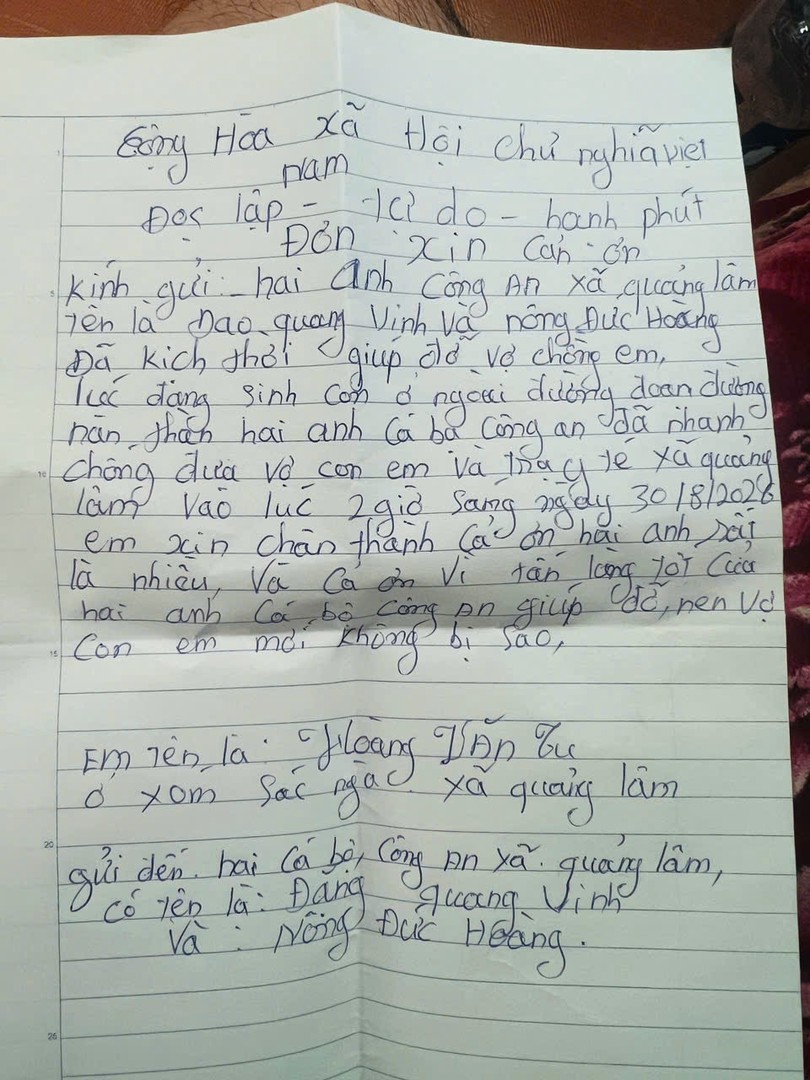 Cộng Hòa xã Hội chủ nghĩa việt
nam
Đọc lập - tự do - hanh phút
Đơn xin cản ơn
kính gửi: hai anh công An xã quảng lâm
tên là Đao quang Vinh và nông Đức Hoàng
Đã kich thời giúp đỡ vợ chồng em,
lúc đăng sinh con ở ngoài đường đoan đường
nàn thàn hai anh cá bộ công an đã nhanh
chông đưa vợ con em và trạy tế xã quảng
lâm vào lúc 2 giờ sáng ngày 30/8/2026
em xin chân thành cả ơn hai anh rất
là nhiều, và cả ơn vì tấn lòng tốt của
hai anh cá bộ công An giúp đỡ, nen vợ
con em mới không bị sao,
Em tên là: Hoàng Văn Tu
ở xom Sác ngà xã quảng lâm
gửi đến hai cá bộ, công An xã quảng lâm,
có tên là: Đang quang Vinh
Và: Nông Đức Hoàng.
1
5
10
15
20
25